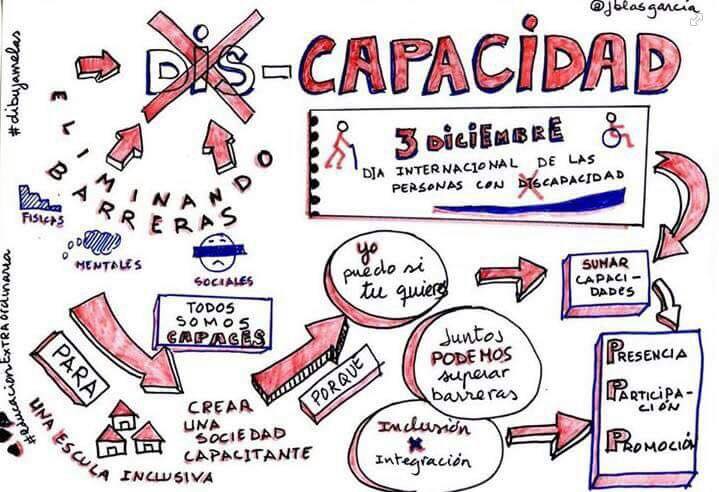 @jblasgarcia
DiS-CAPACiDAD
#dibujamelas
ELIMINANDO
BARRERAS
3 DICIEMBRE
DIA INTERNACIONAL DE LAS
PERSONAS CON DISCAPACIDAD
FISICAS
MENTALES
SOCIALES
yo
puedo si
tu quieres
SUMAR
CAPACI-
DADES
TODOS
SOMOS
CAPACES
Juntos
PODEMOS
superar
barreras
PRESENCIA
PARTICIPA-
CIÓN
PROMOCIÓN
PARA
PORQUE
UNA ESCULA INCLUSIVA
CREAR
UNA
SOCIEDAD
CAPACITANTE
Inclusión
x
Integración
#EducacionEXTRAordinaria